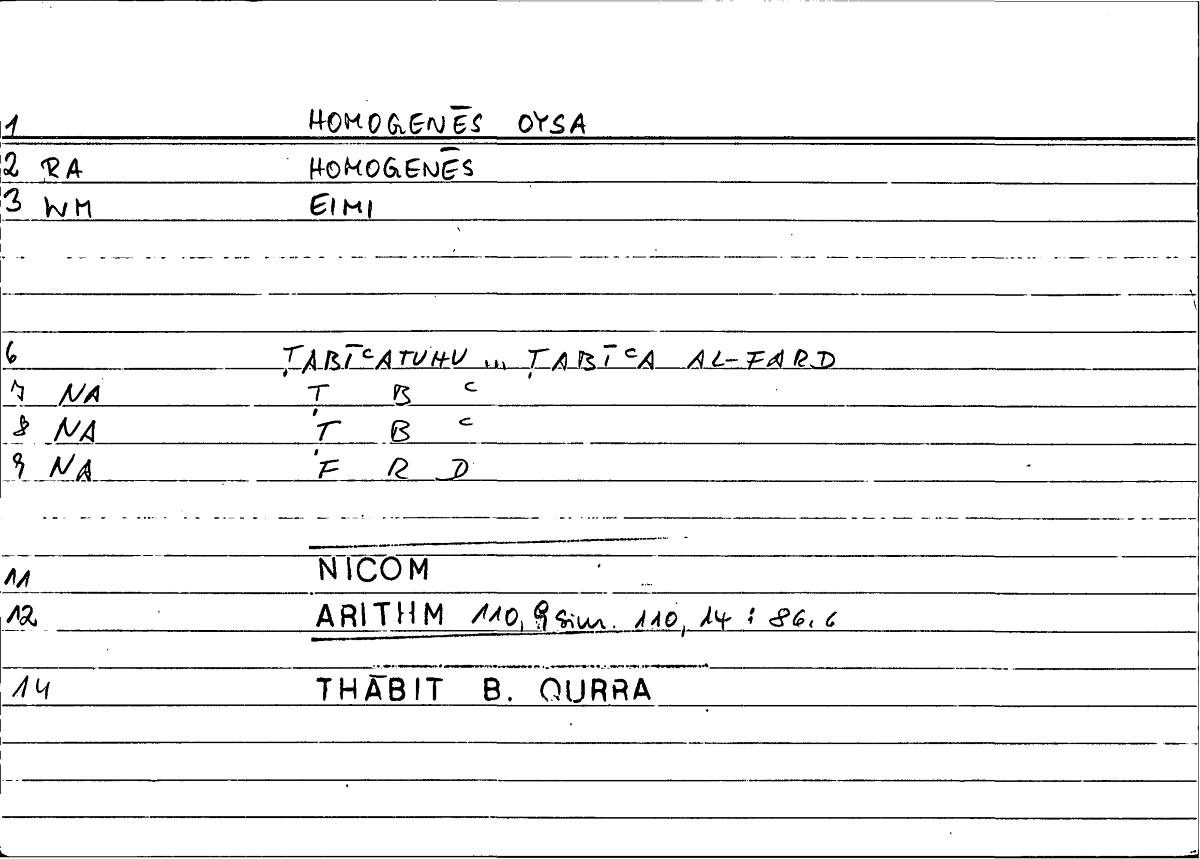 1 HOMOGENĒS OYSA
2 RA HOMOGENĒS
3 WM EIMI
6 ṬABĪᶜATUHU ... ṬABĪᶜA AL-FARD
7 NA Ṭ B ᶜ
8 NA Ṭ B ᶜ
9 NA F R D
11 NICOM
12 ARITHM 110, 9 sim. 110, 14 : 86.6
14 THĀBIT B. QURRA